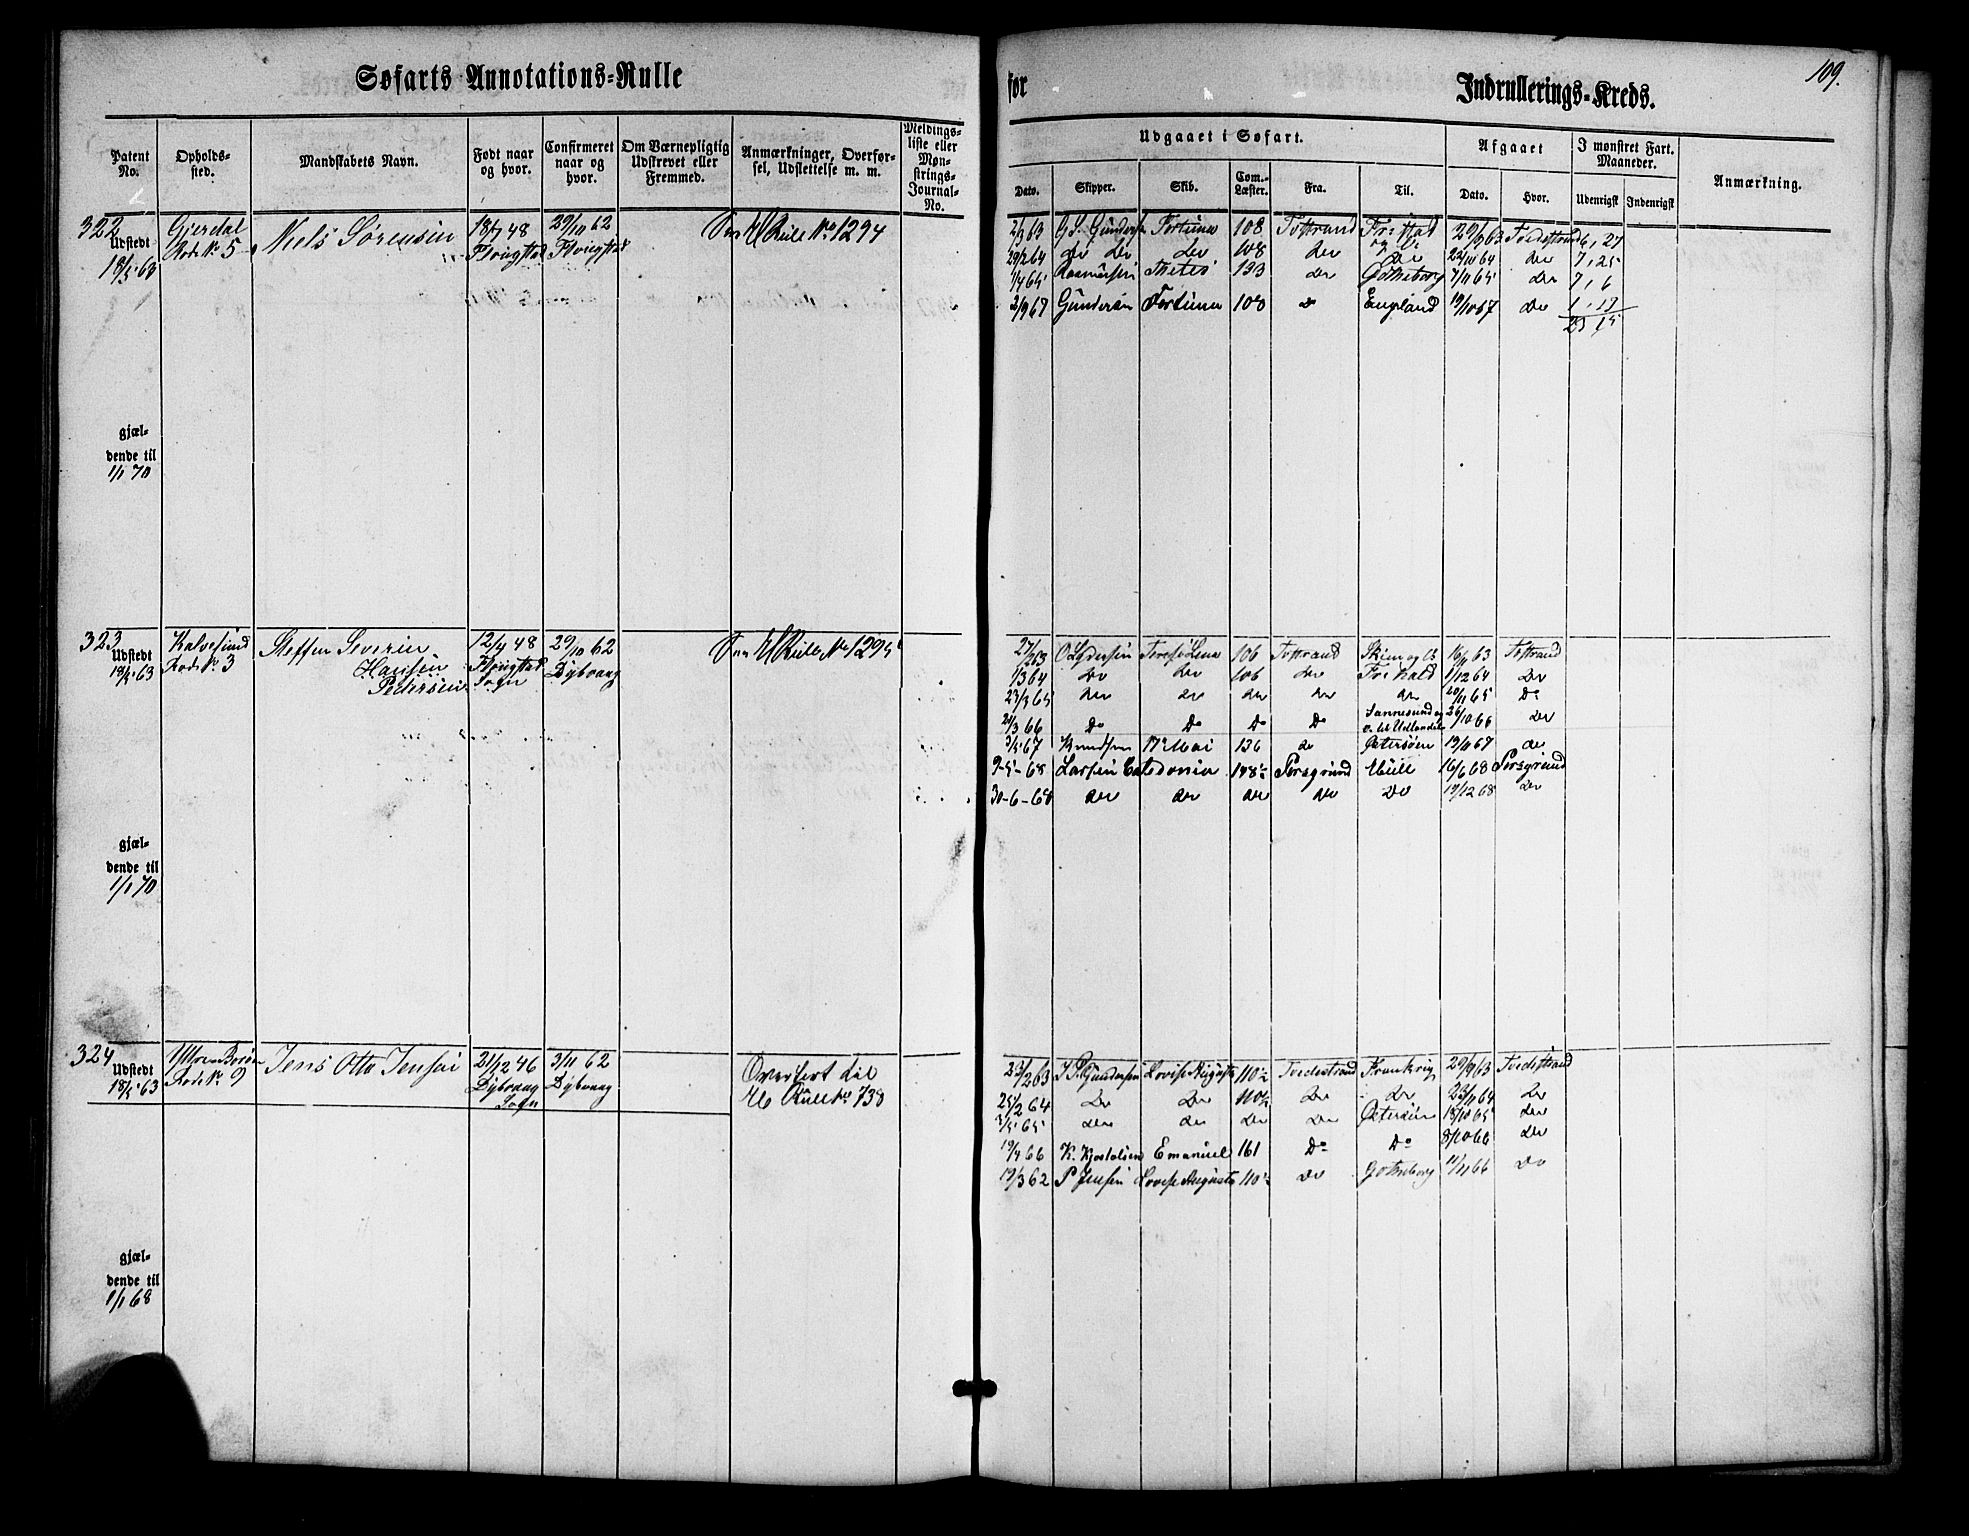 109.
Søfarts Annotations=Rulle for Indrullerings=Kreds.
Patent No.
Opholds-sted.
Mandskabets Navn.
Født naar og hvor.
Confirmeret naar og hvor.
Om Værnepligtig Udskrevet eller Fremmed.
Anmærkninger, Overførsel, Udslettelse m. m.
Meldings-liste eller Møn-strings-Journal-No.
Udgaaet i Søfart.
Afgaaet
I mønstret Fart. Maaneder.
Anmærkning.
Dato.
Skipper.
Skib.
Com.-Læster.
Fra.
Til.
Dato.
Hvor.
Udenrigst
Indenrigst
322 Gjerdal Niels Sørensen 18/7 48 29/10 62 Rulle No 1294
Udstedt Rode No 5 Flougstad Flougstad
18/5 63
gjæl-
dende til
1/1 70
2/3 63 G. S. Gundersen Fortuna 108 Tvstrand 29/9 63 Tvedestrand 6, 27
29/2 64 do do do 108 do do 22/10 64 do 7, 25
1/4 65 Rasmussen Thetis 133 do Gøtheborg 7/11 65 do 7, 6
2/9 67 Gundersen Fortuna 108 do England 19/10 67 do 1, 17
323 Kalvesund Steffen Severin 12/4 48 29/10 62 Rulle No 1295
Udstedt Rode No 3 Hansen Flougstad Dybvaag
18/5 63 Pedersen Sogn
gjæl-
dende til
1/1 70
27/2 63 106 Tvstrand 16/11 63 Tvstrand
1/3 64 do do 106 do 1/12 64 do
23/3 65 do do do do do 20/11 65 do
21/3 66 do do do do 26/10 66 do
3/5 67 Knudsen 17 Mai 136 do Østersøen 19/10 67 do
9-5-68 Larsen Caledonia 148½ Porsgrund Hull 16/6 68 Porsgrund
30-6-68 do do do do do 19/12 68 do
324 Jens Otto Jensen 21/12 46 3/11 62 Overført til
Udstedt Rode No 9 Dybvaag Dybvaag Rulle No 738
18/5 63 Sogn
gjæl-
dende til
1/1 68
23/2 63 Gundersen Lovise Augusta 110½ Tvedestrand Frankrig 29/9 63 Tvedestrand
25/2 64 do do 110½ do do 22/11 64 do
2/5 65 do do do do Østersøen 18/10 65 do
19/4 66 Emanuel 161 do do 8/10 66 do
19/3 62 P Jensen Lovise Augusta 110½ do Gøtheborg 11/11 66 do